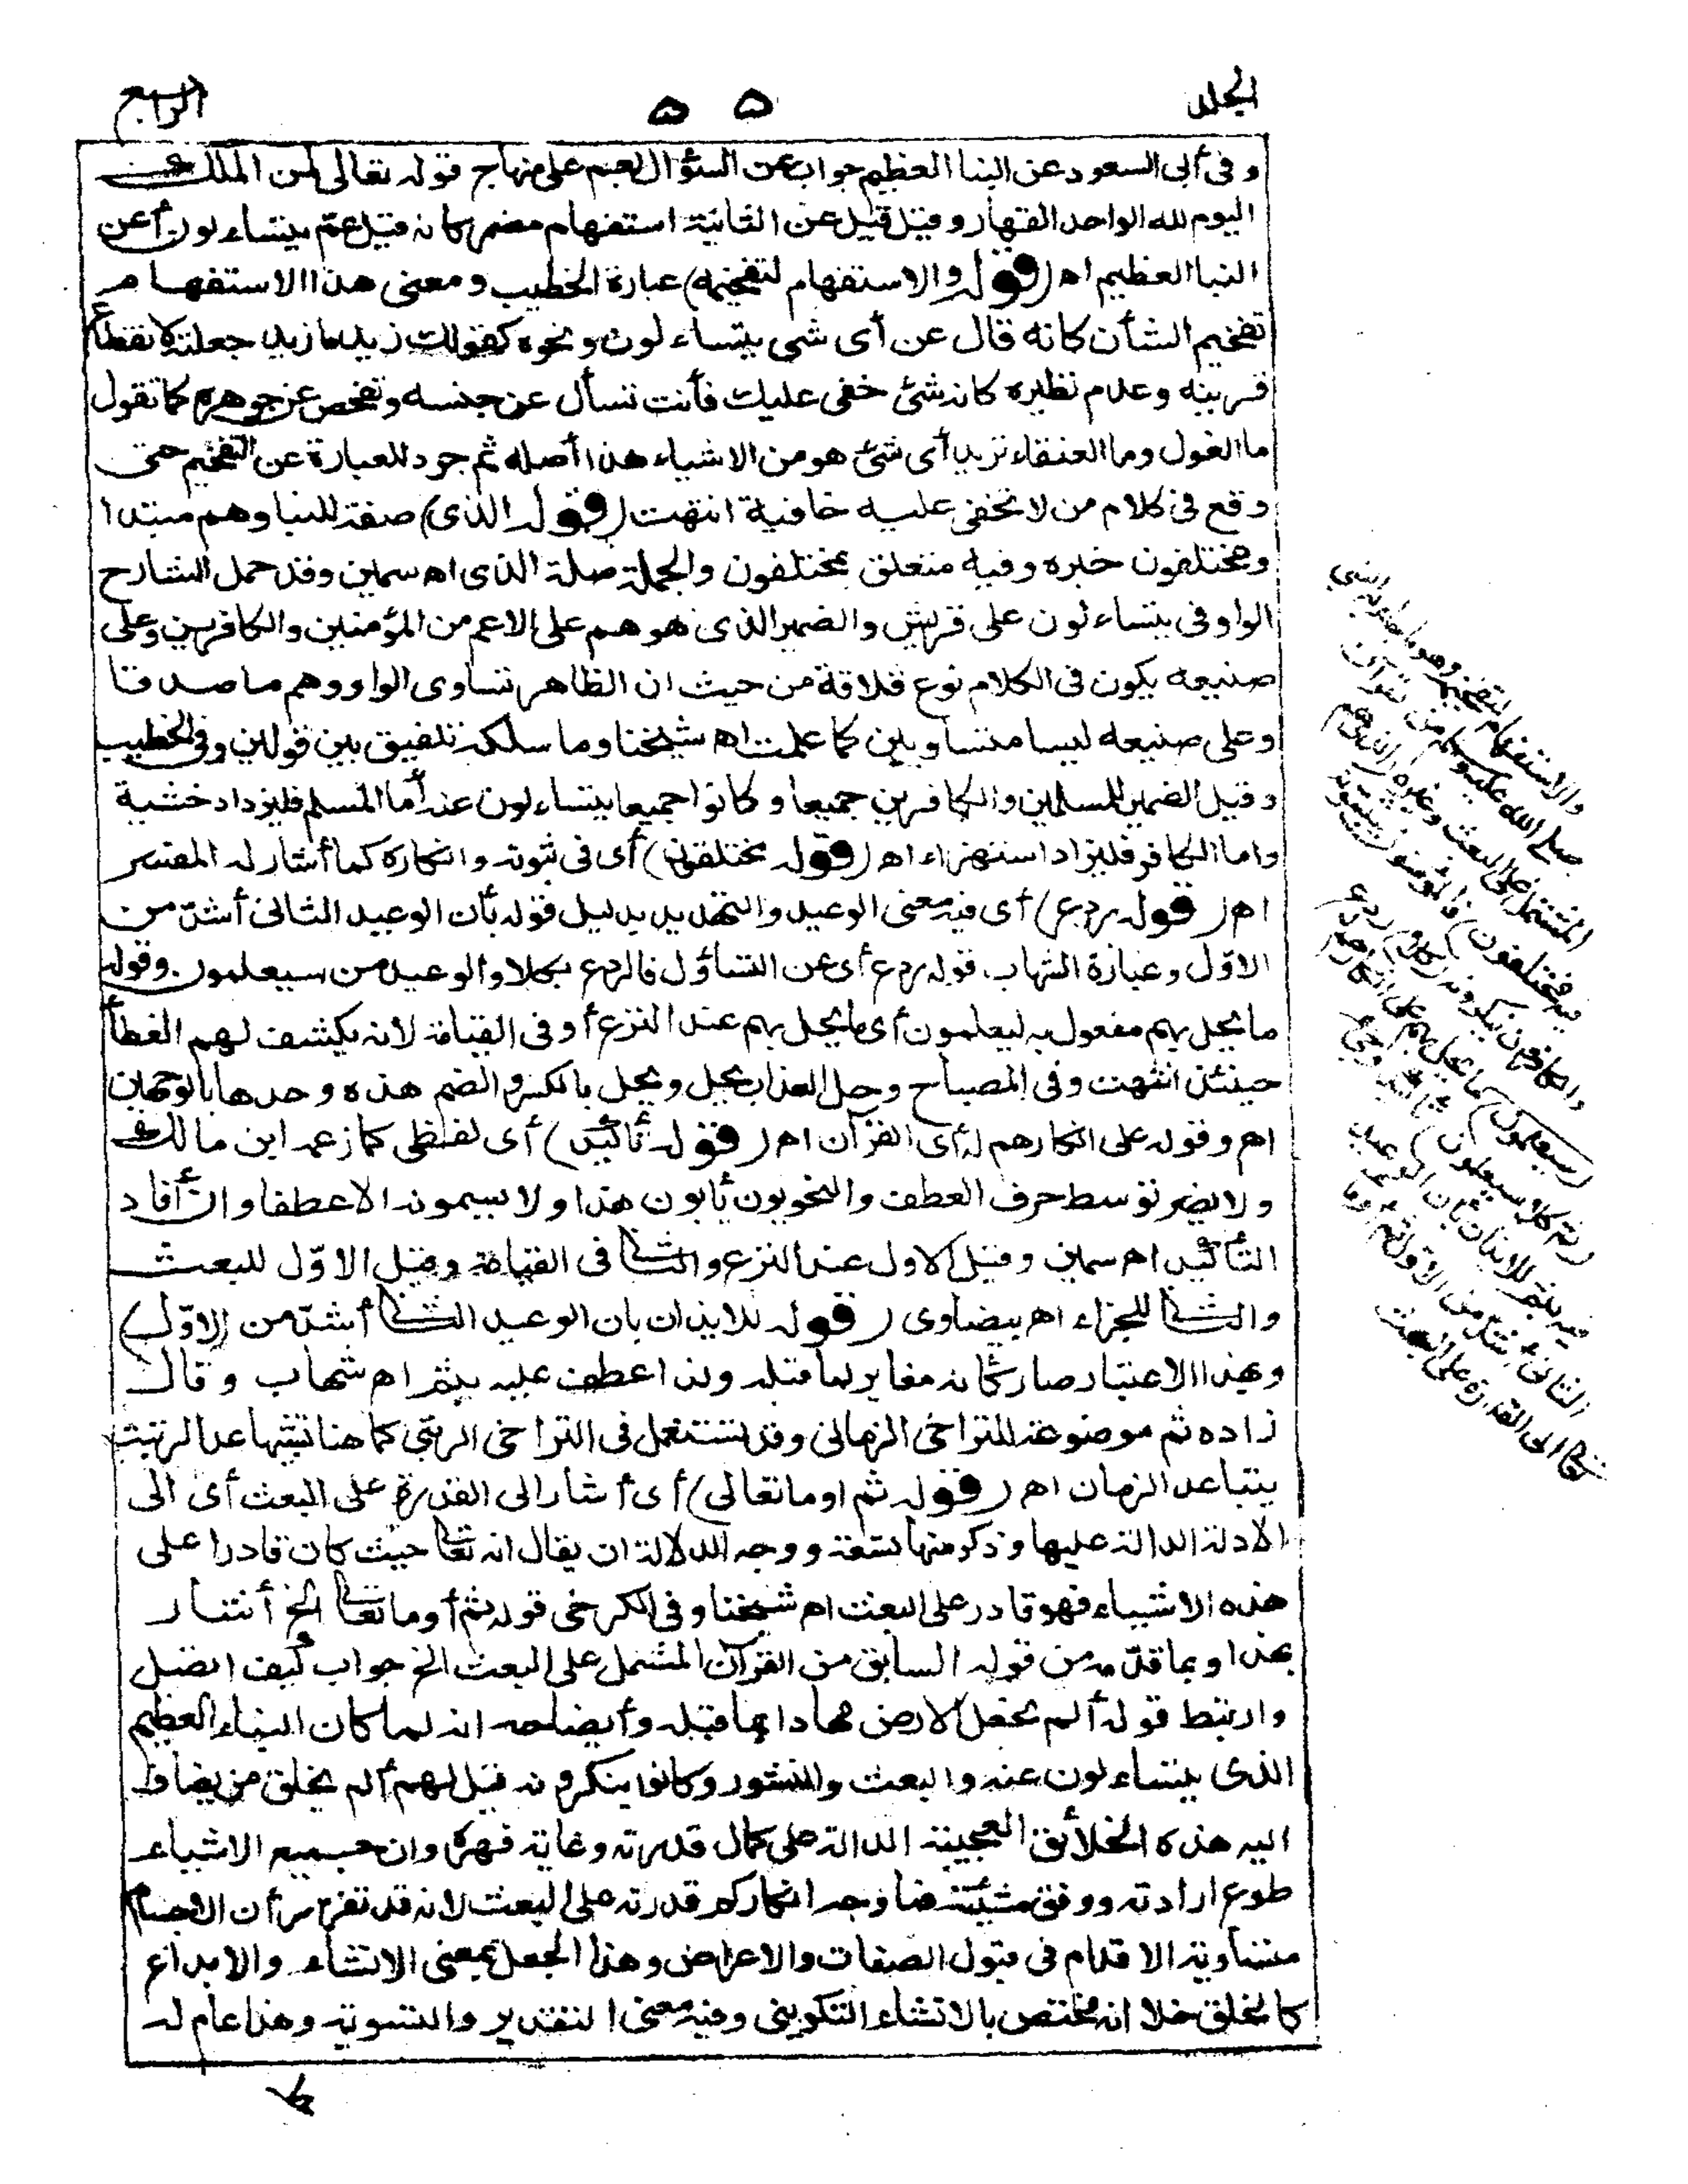 الجلد
٥ ٥
الرابع
وفى أبى السعود عن النبا العظيم جواب عن السؤال لعم على منهاج قوله تعالى لمن الملك
اليوم لله الواحد القهار وقيل قيل عن الثانية استفهام مضمر كانه قيل عم يتساءلون أعن
النبا العظيم اه (قوله والاستفهام لتفخيمه) عبارة الخطيب ومعنى هذا الاستفهام
تفخيم الشأن كانه قال عن أى شى يتساءلون ونحوه كقولك زيد ما زيد جعلته لانقطاع
قرينه وعدم نظيره كانه شئ خفى عليك فأنت تسأل عن جنسه وتفحص عن جوهره كما تقول
ما الغول وما العنقاء تريد أى شئ هو من الاشياء هذا أصله ثم جرد للعبارة عن التفخيم حتى
وقع فى كلام من لا تخفى عليه خافية انتهت (قوله الذى) صفة للنبا وهم مبتدا
ومختلفون خبره وفيه متعلق بمختلفون والجملة صلة الذى اه سمين وقد حمل الشارح
الواو فى يتساءلون على قريش والضمير الذى هو هم على الاعم من المؤمنين والكافرين وعلى
صنيعه يكون فى الكلام نوع قلاقة من حيث ان الظاهر تساوى الواو وهم ما صدقا
وعلى صنيعه ليسا متساويين كما علمت اه شيخنا وما سلكه تلفيق بين قولين وفى الخطيب
وقيل الضمير للمسلمين والكافرين جميعا وكانوا جميعا يتساءلون عنه أما المسلم فليزداد خشية
واما الكافر فليزداد استهزاء اه (قوله مختلفون) أى فى ثبوته وانكاره كما أشار له المفسر
اه (قوله ردع) أى فيه معنى الوعيد والتهديد بدليل قوله بأن الوعيد الثانى أشد من
الاول وعبارة الشهاب قوله ردع أى عن التساؤل فالردع بكلا والوعيد من سيعلمون وقوله
ما يحل بهم مفعول به ليعلمون أى ما يحل بهم عند النزع أو فى القيامة لانه يكشف لهم الغطأ
حينئذ انتهت وفى المصباح وحل العذاب يحل ويحل بالكسر والضم هذه وحدها بالوجهين
اه وقوله على انكارهم له أى القرآن اه (قوله تأكيد) أى لفظى كما زعمه ابن مالك
ولا يضر توسط حرف العطف والنحويون يأبون هذا ولا يسمونه الا عطفا وان أفاد
التأكيد اه سمين وقيل الاول عند النزع والثانى فى القيامة وقيل الاول للبعث
والثانى للجزاء اه بيضاوى (قوله للايذان بان الوعيد الثانى أشد من الاول)
وبهذا الاعتبار صار كأنه مغاير لما قبله ولذا عطف عليه بثم اه شهاب وقال
زاده ثم موضوعة للتراخى الزمانى وقد تستعمل فى التراخى الرتبى كما هنا تشبيها لتباعد الرتبة
بتباعد الزمان اه (قوله ثم اوما تعالى) أى أشار الى القدرة على البعث أى الى
الادلة الدالة عليها وذكر منها تسعة ووجه الدلالة ان يقال انه تعالى حيث كان قادرا على
هذه الاشياء فهو قادر على البعث اه شيخنا وفى الكرخى قوله ثم أوما تعالى الخ أشار
بهذا وبما قدمه من قوله السابق من القرآن المشتمل على البعث الخ جواب كيف اتصل
وارتبط قوله ألم نجعل الارض مهادا بما قبله وأيضاحه انه لما كان النباء العظيم
الذى يتساءلون عنه والبعث والنشور وكانوا ينكرونه قيل لهم ألم يخلق من يضاف
اليه هذه الخلائق العجيبة الدالة على كمال قدرته وغاية قهره وان جميع الاشياء
طوع ارادته ووفق مشيئته فما وجه انكاركم قدرته على البعث لانه قد تقرر أن الاجسام
متساوية الاقدام فى قبول الصفات والاعراض وهذا الجعل بمعنى الانشاء والابداع
كالخلق خلا انه مختص بالانشاء التكوينى وفيه معنى التقدير والتسوية وهذا عام له
والاستفهام لتفخيمه وهو ما جاء به النبى
صلى الله عليه وسلم من القرآن
المشتمل على البعث وغيره (الذى هم
فيه مختلفون) فالمؤمنون يثبتونه
والكافرون ينكرونه (كلا) ردع
(سيعلمون) ما يحل بهم على انكارهم له
(ثم كلا سيعلمون) تأكيد وجئ
فيه بثم للايذان بان الوعيد
الثانى أشد من الاول ثم أوما
تعالى الى القدرة على البعث